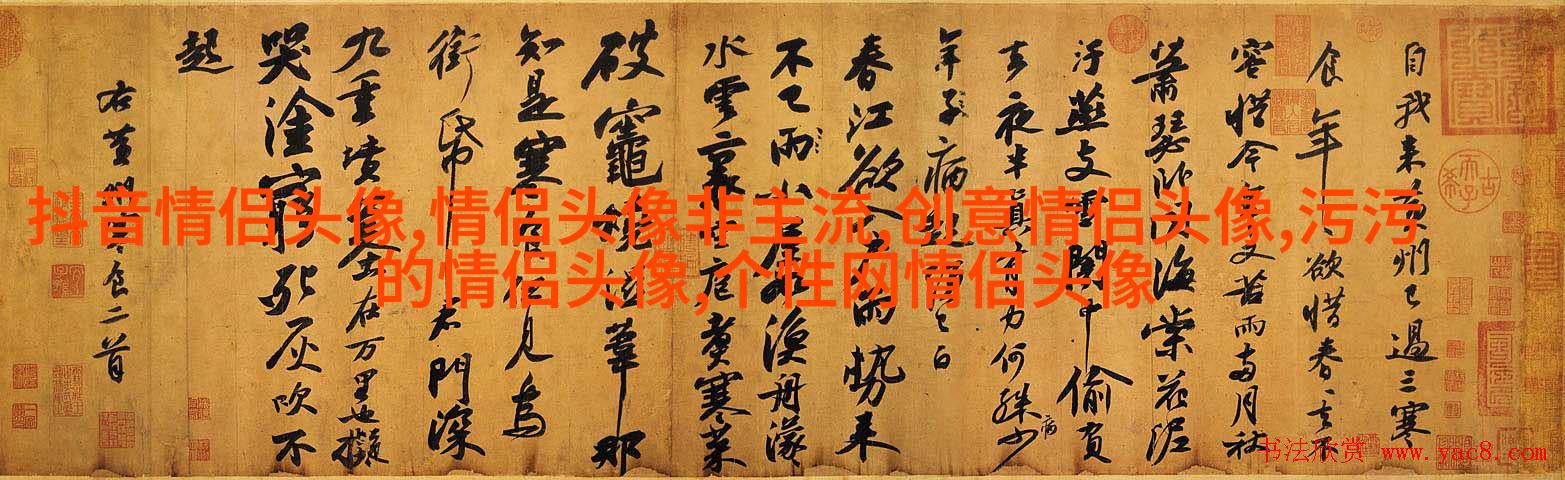 自我来黄州已過三寒
食年年欲惜春春去不
容惜今年又苦雨兩月秋
蕭瑟卧聞海棠花泥
汙燕支雪闇中偷負
去夜半真有力何殊少
病
年子病起頭已白
春江欲入戶雨勢来
不已雨小屋如漁舟濛
水雲裏空庖煮寒菜
破竈燒濕葦那
知是寒食但見烏
銜帋君門深
九重墳墓在万里也擬
哭塗窮死灰吹不
起
右黄州寒食二首
抖音情侣头像,情侣头像非主流,创意情侣头像,污污
的情侣头像,个性网情侣头像
书法欣赏 www.yac8.com